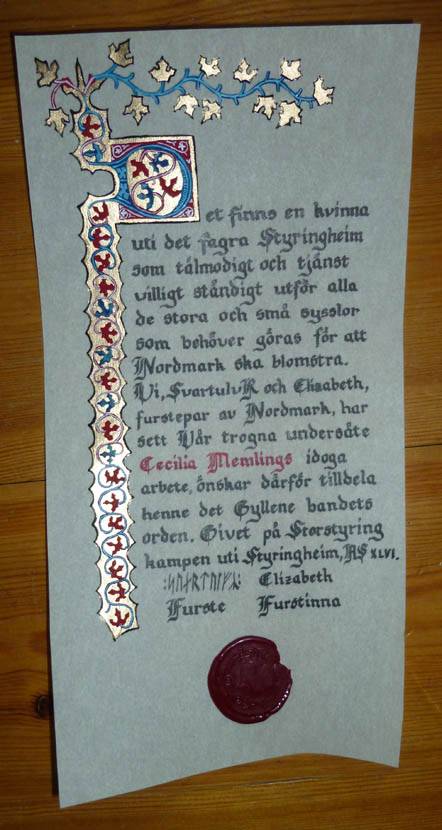 Det finns en kvinna
uti det fagra Styringheim
som tålmodigt och tjänst
villigt ståndigt utför alla
de stora och små sysslor
som behöver göras för att
Nordmark ska blomstra.
Vi, SvartulvR och Elizabeth,
furstepar av Nordmark, har
sett Vår trogna undersåte
Cecilia Memlings idoga
arbete, önskar därför tilldela
henne det Gyllene bandets
orden. Givet på Storstyring
kampen uti Styringheim, AS XLVI.
Elizabeth
Furste Furstinna